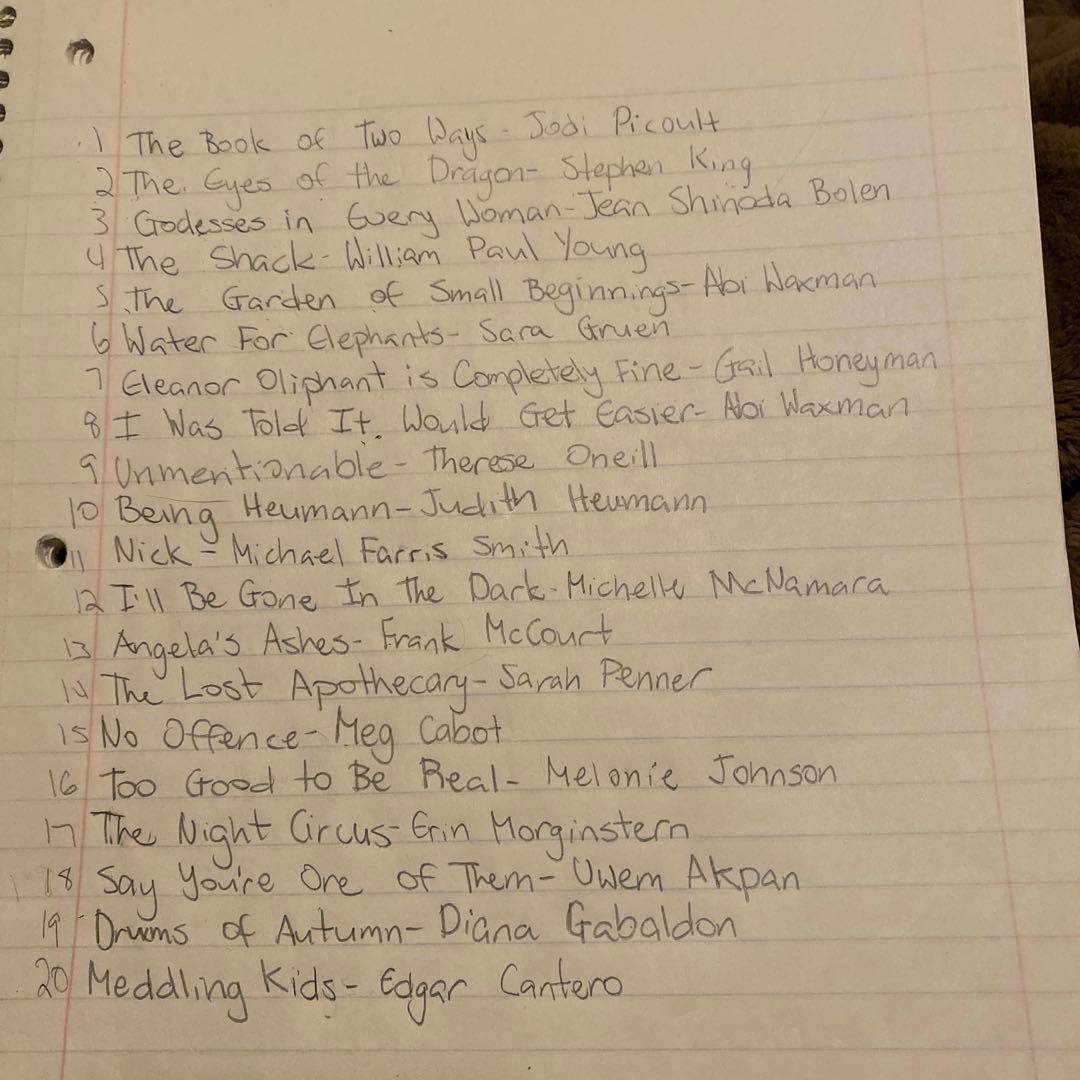 1 The Book of Two Ways - Jodi Picoult
2 The Eyes of the Dragon - Stephen King
3 Godesses in Every Woman - Jean Shinoda Bolen
4 The Shack - William Paul Young
5 The Garden of Small Beginnings - Abi Waxman
6 Water For Elephants - Sara Gruen
7 Eleanor Oliphant is Completely Fine - Gail Honeyman
8 I Was Told It Would Get Easier - Abi Waxman
9 Unmentionable - Therese Oneill
10 Being Heumann - Judith Heumann
11 Nick - Michael Farris Smith
12 I'll Be Gone In The Dark - Michelle McNamara
13 Angela's Ashes - Frank McCourt
14 The Lost Apothecary - Sarah Penner
15 No Offence - Meg Cabot
16 Too Good to Be Real - Melonie Johnson
17 The Night Circus - Erin Morginstern
18 Say You're One of Them - Uwem Akpan
19 Drums of Autumn - Diana Gabaldon
20 Meddling Kids - Edgar Cantero